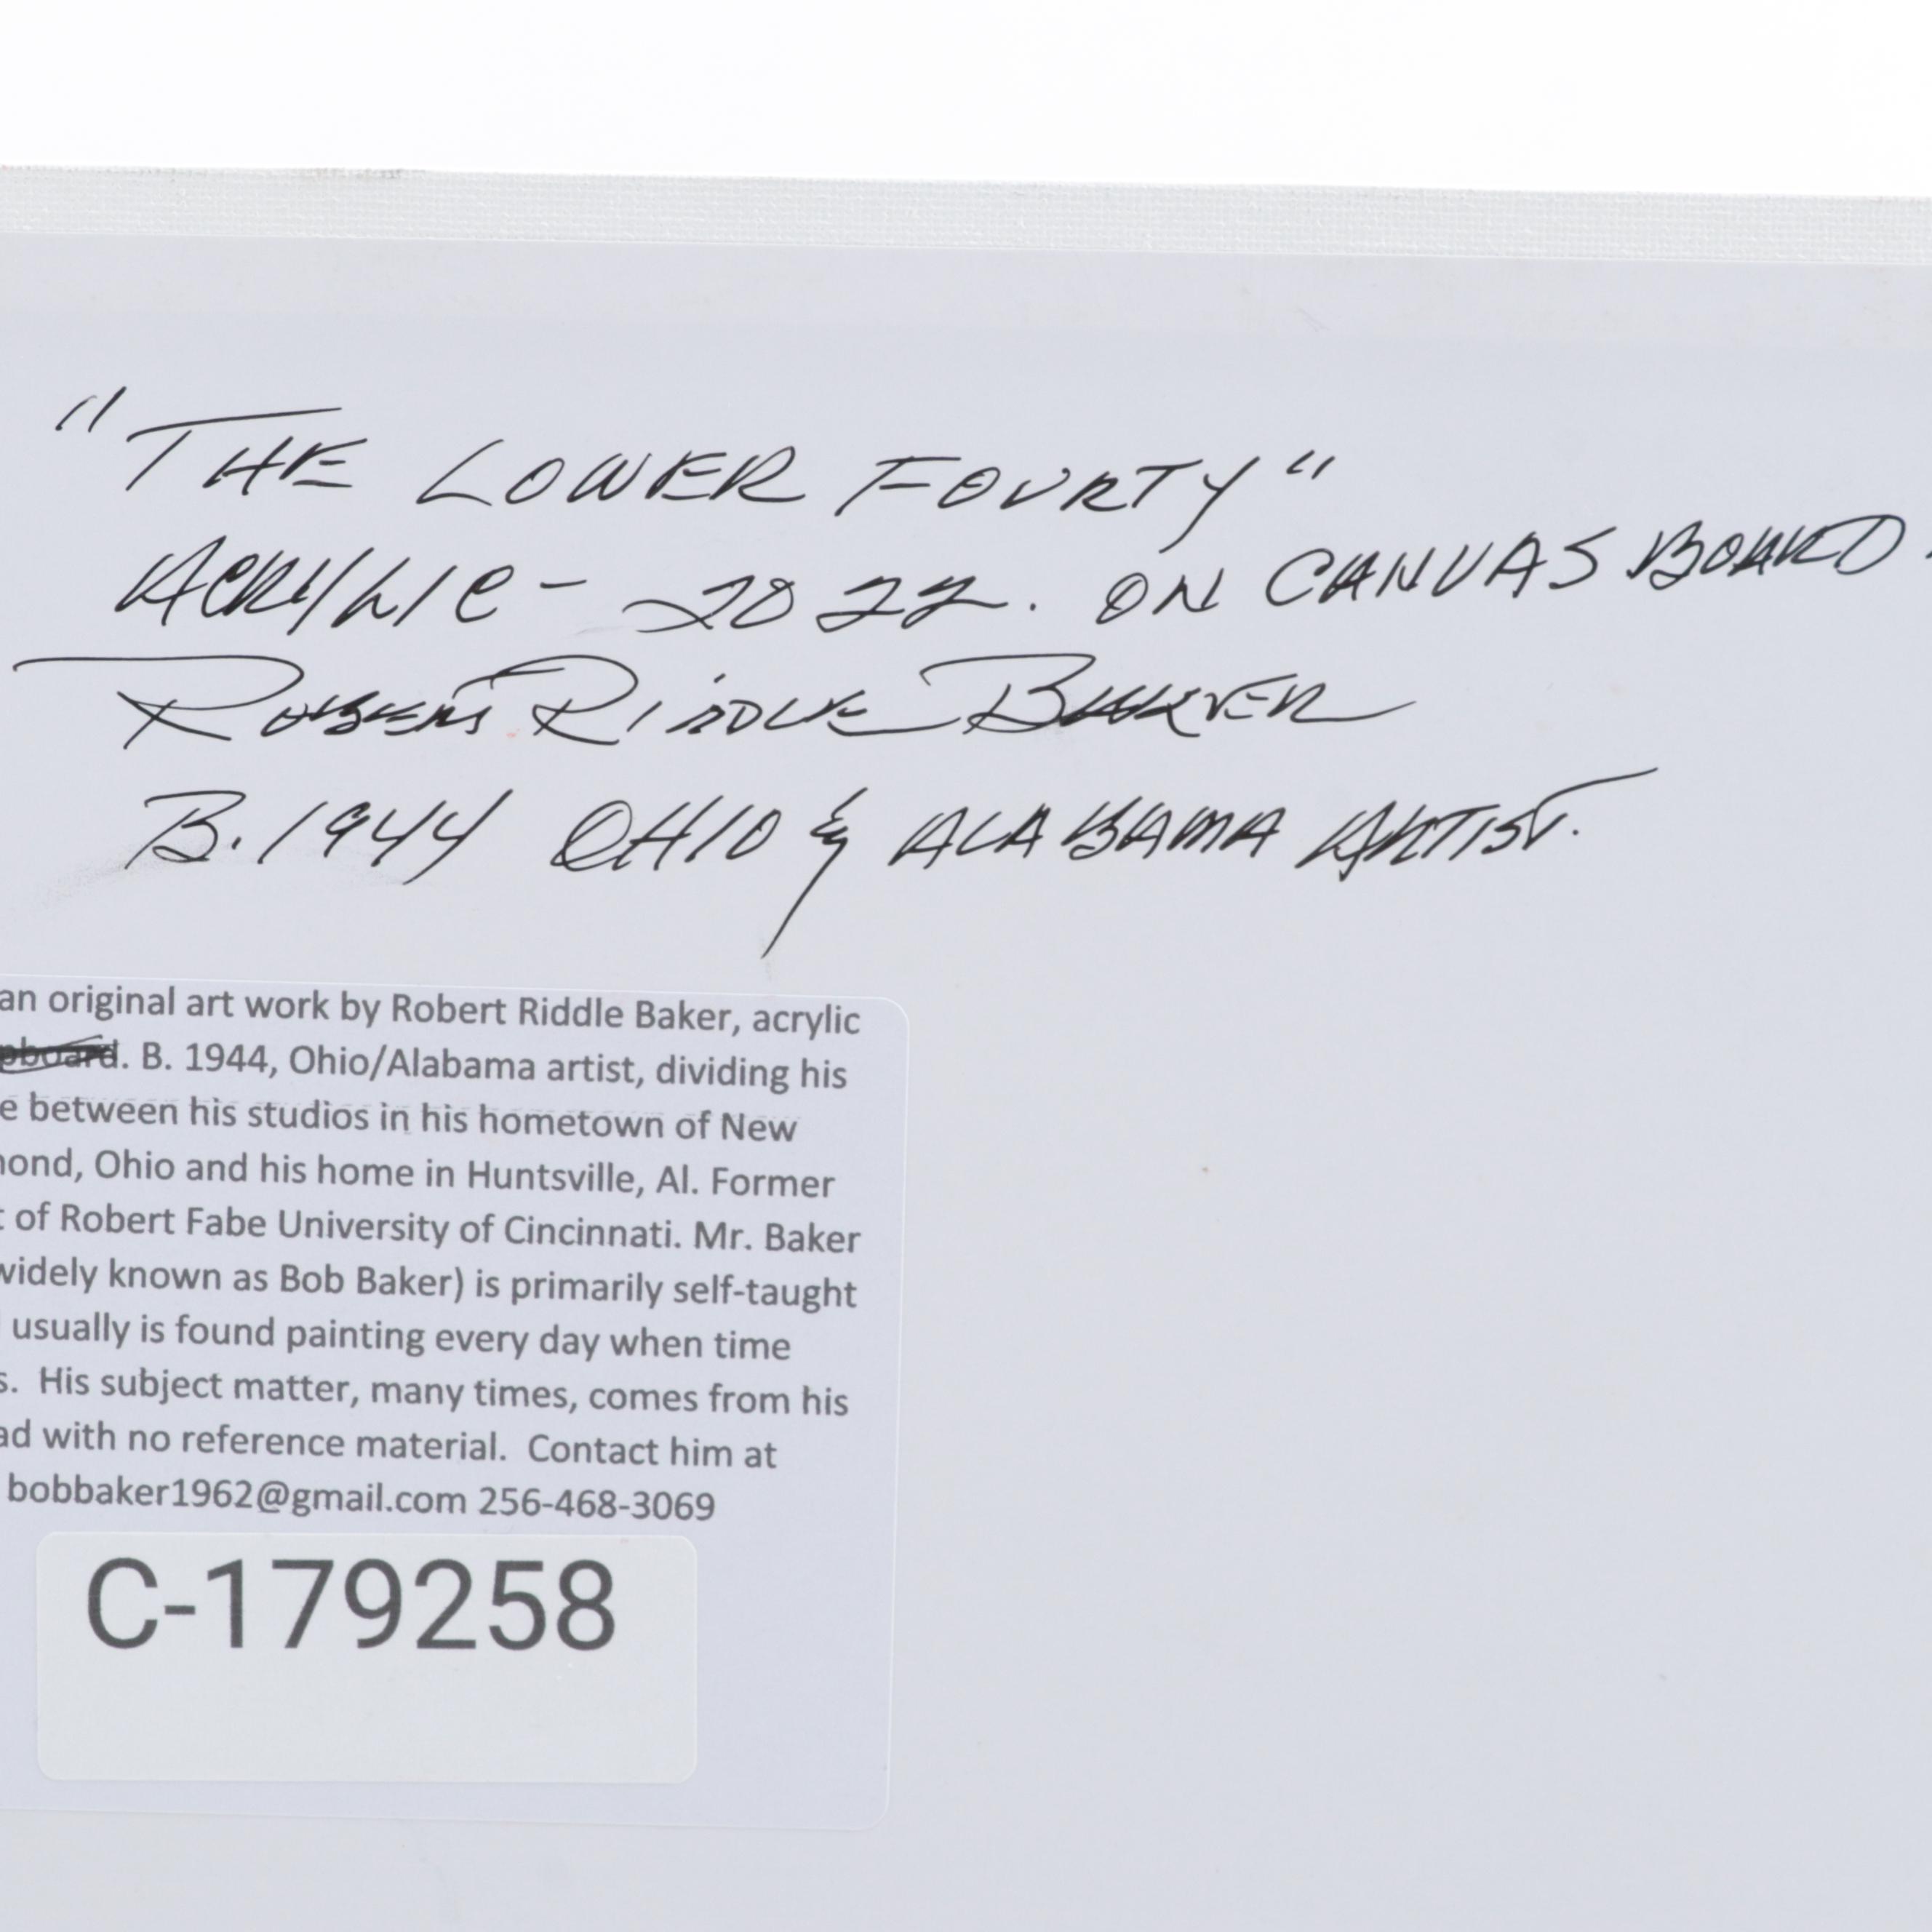 "THE LOWER FOURTY"
ACRYLIC - 2022. ON CANVAS BOARD.
ROBERT RIDDLE BAKER
B. 1944 OHIO & ALABAMA ARTIST.
an original art work by Robert Riddle Baker, acrylic
pboard. B. 1944, Ohio/Alabama artist, dividing his
e between his studios in his hometown of New
mond, Ohio and his home in Huntsville, Al. Former
t of Robert Fabe University of Cincinnati. Mr. Baker
widely known as Bob Baker) is primarily self-taught
usually is found painting every day when time
s. His subject matter, many times, comes from his
ad with no reference material. Contact him at
bobbaker1962@gmail.com 256-468-3069
C-179258